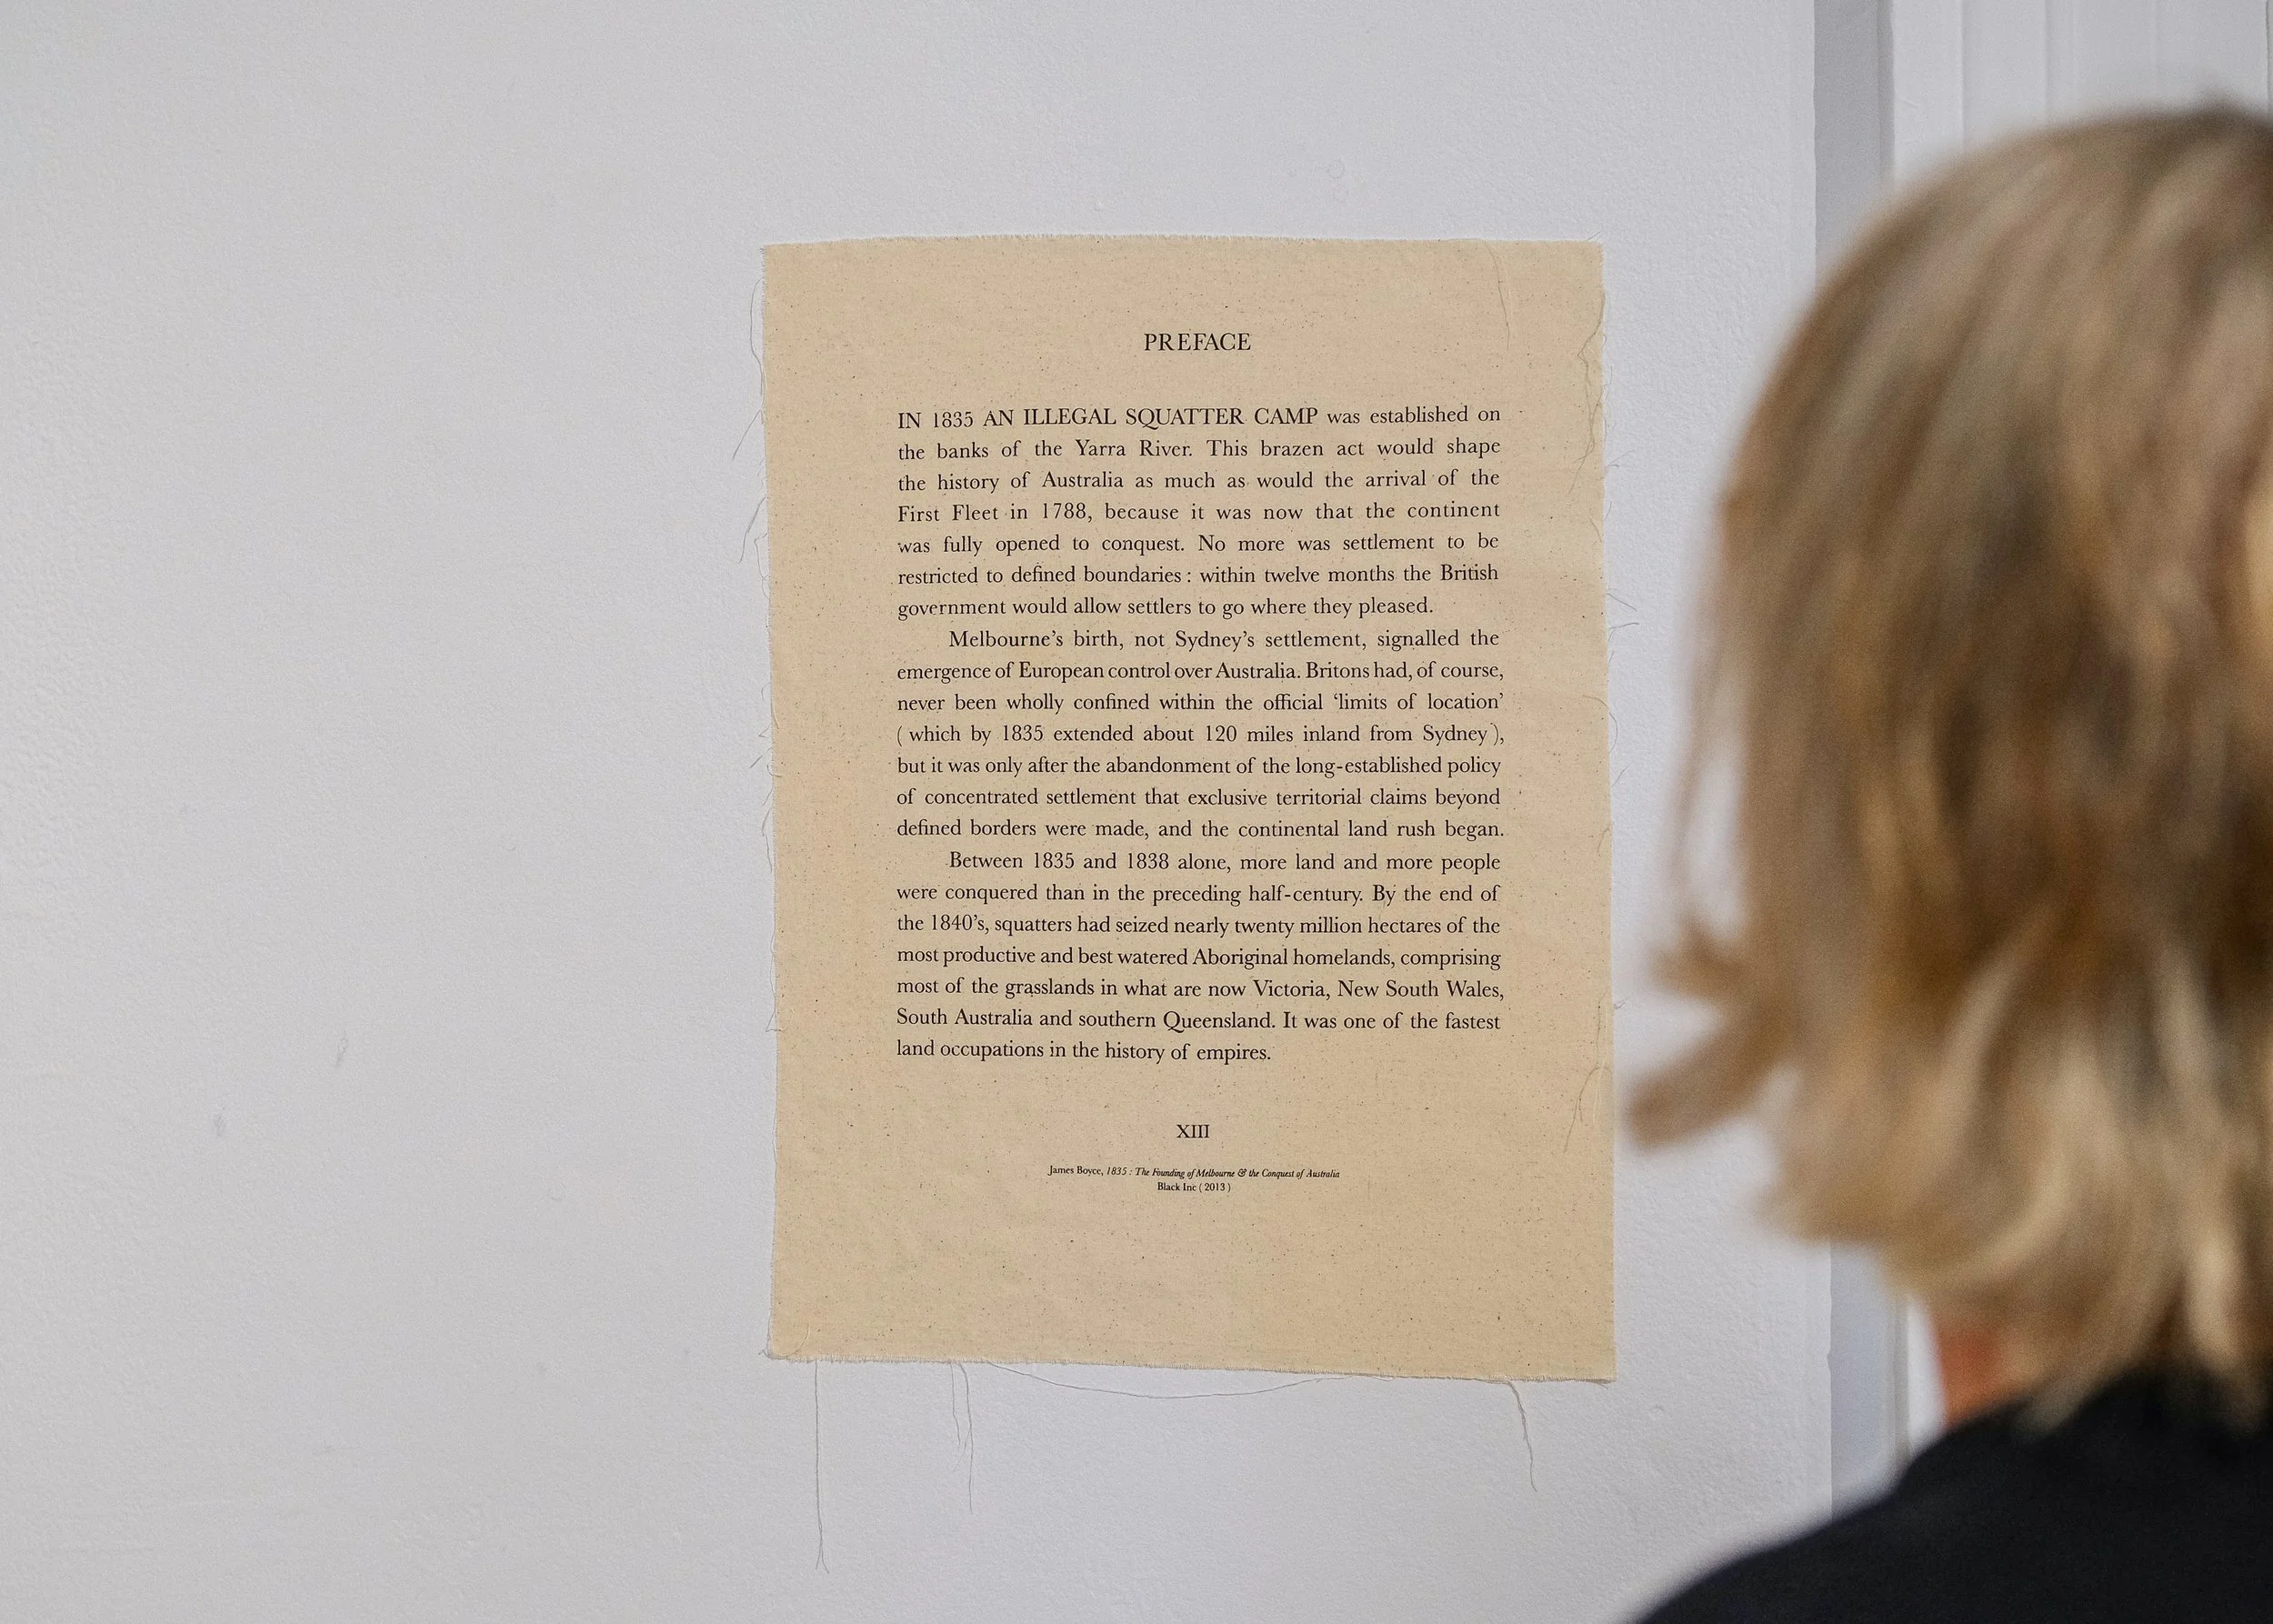 PREFACE
IN 1835 AN ILLEGAL SQUATTER CAMP was established on
the banks of the Yarra River. This brazen act would shape
the history of Australia as much as would the arrival of the
First Fleet in 1788, because it was now that the continent
was fully opened to conquest. No more was settlement to be
restricted to defined boundaries : within twelve months the British
government would allow settlers to go where they pleased.
Melbourne’s birth, not Sydney’s settlement, signalled the
emergence of European control over Australia. Britons had, of course,
never been wholly confined within the official ‘limits of location’
( which by 1835 extended about 120 miles inland from Sydney ),
but it was only after the abandonment of the long-established policy
of concentrated settlement that exclusive territorial claims beyond
defined borders were made, and the continental land rush began.
Between 1835 and 1838 alone, more land and more people
were conquered than in the preceding half-century. By the end of
the 1840’s, squatters had seized nearly twenty million hectares of the
most productive and best watered Aboriginal homelands, comprising
most of the grasslands in what are now Victoria, New South Wales,
South Australia and southern Queensland. It was one of the fastest
land occupations in the history of empires.
XIII
James Boyce, 1835 : The Founding of Melbourne & the Conquest of Australia
Black Inc ( 2013 )